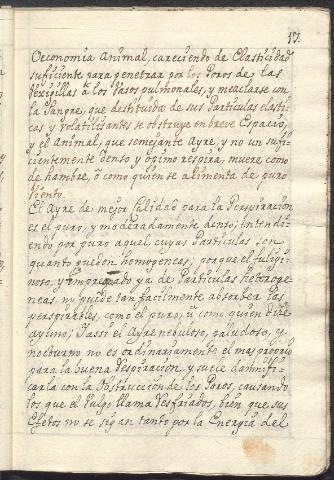 17.
Oeconomia Animal, careciendo de Elasticidad
suficiente para penetrar por los Poros de las
Vexigillas à los Vasos pulmonales, y mezclarse con
la Sangre, que destituida de sus Particulas elasti-
cas y volatilizantes se obstruye en breve Espacio,
y el Animal, que semejante Ayre, y no un sufi-
cientemente denso y opimo respira, muere como
de hambre, ò como quien se alimenta de puro
Viento.
El Ayre de mejor Calidad para la Perspiracion
es el puro, y moderadamente denso; entendi-
endo por puro aquel cuyas Particulas son
quanto pueden homogeneas; porque el fuligi-
noso, y impregnado ya de Particulas heteroge-
neas, no puede tan facilmente absorber las
perspirables, como el puro, ù como quien dize
ayuno; Y assi el Ayre nebuloso, paludoso, y
nocturno no es ordinariamente el mas proprio
para la buena Respiracion, y suele damnifi-
carla con la Obstruccion de los Poros, causando
los que el Vulgo llama Resfriados, bien que sus
Efetos no se sigan tanto por la Energia del